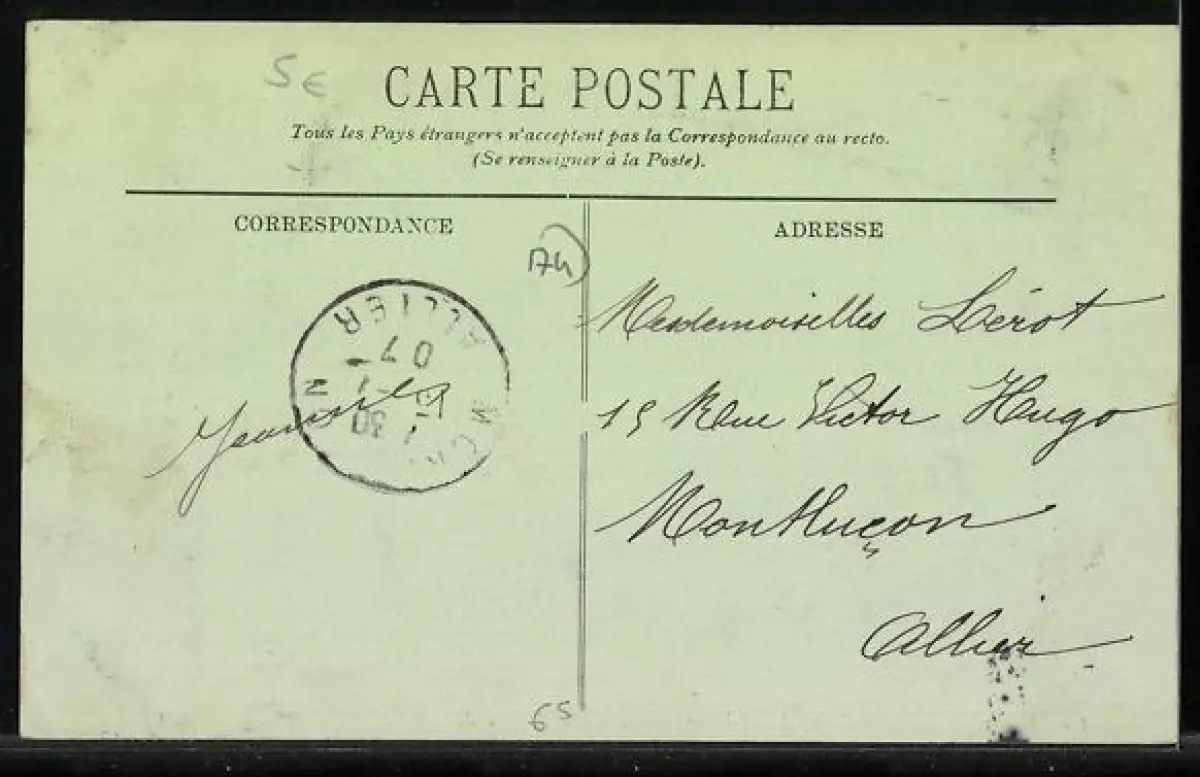 5 €
CARTE POSTALE
Tous les Pays étrangers n'acceptent pas la Correspondance au recto.
(Se renseigner à la Poste).
CORRESPONDANCE
ADRESSE
174
ALLIER
07
30
Mesdemoiselles Lérot
15 Rue Victor Hugo
Montluçon
Allier
65